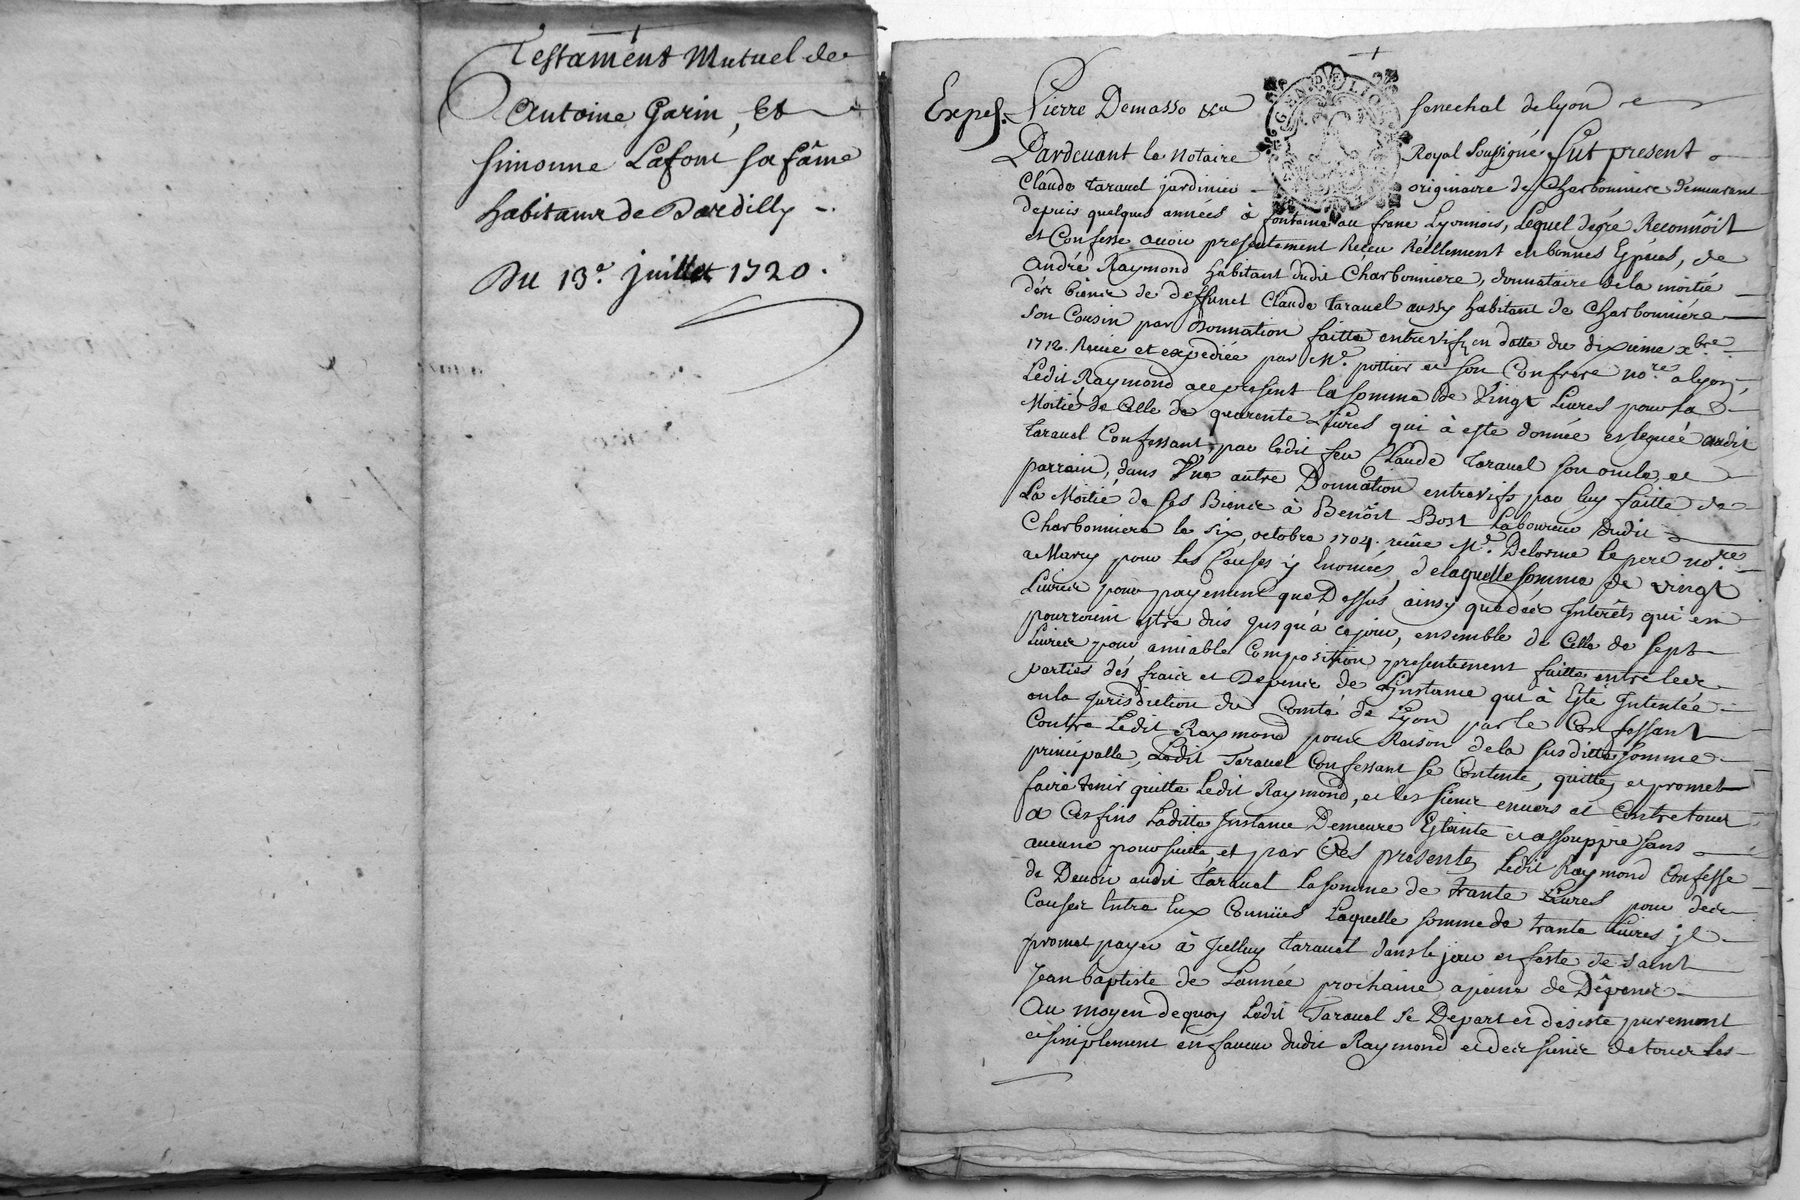 Testament Mutuel de
Antoine Garin, Et
Simonne Lafont sa fâme
habitans de Dardilly -.
Du 13.e juillet 1720.
GEN DE LION
Exped. Pierre Demasso &ca senechal de lyon
Pardevant le Notaire Royal Soussigné fut present
Claude taravel jardinier originaire de Charbonniere demeurant
depuis quelques années à fontaine au franc Lyonnois, Lequel de gré Reconnoit
et Confesse avoir presentement Receu Réellement en bonnes Espéces, de
André Raymond habitant dudit Charbonniere, donnataire de la moitié
des biens de deffunct Claude taravel aussy habitant de Charbonniére
son Cousin par Donnation faitte entrevifs en datte du dixieme xbre
1712. Receüe et expediée par Me. pottier et son Confrere nore. a lyon,
Ledit Raymond acc present la somme de Vingt Livres pour la
Moitié de Celle de quarente Livres qui à esté donnée et leguée audit
taravel Confessant, par ledit feu Claude taravel son oncle, et
parrain, dans Une autre Donnation entrevifs par luy faitte de
La Moitié de ses Biens à Benoit Bost Laboureur dudit
Charbonniere le six, octobre 1704. receüe Me. Delorme le pere nore.
a Marcy pour les Causes y Enoncées, de laquelle somme de vingt
Livres pour payement que Dessus, ainsy que des Interêts qui en
pourroient estre dus jusqu'à ce jour, ensemble de Celle de sept
Livres pour amiable Composition presentement faitte entre les
parties des frais et Depens de Linstance qui à Esté Intentée
en la Jurisdiction du Comté de Lyon par le Confessant
Contre Ledit Raymond pour Raison de la susditte somme
principalle, Ledit Taravel Confessant se Contente, quitte, et promet
faire tenir quitte Ledit Raymond, et les siens envers et Contre tous
a Ces fins Laditte Instance Demeure Esteinte et assouppie sans
aucune poursuitte, et par Ces presentes Ledit Raymond Confesse
de Devoir audit taravel la somme de trante Livres pour des
Causes Entre Eux Connües Laquelle somme de trante Livres il
promet payer à Jcelluy taravel dans le jour et feste de saint
Jean baptiste de Lannée prochaine a peine de Dépens
Au moyen dequoy Ledit Taravel se Depart et desiste purement
et simplement en faveur dudit Raymond et des siens de tous les